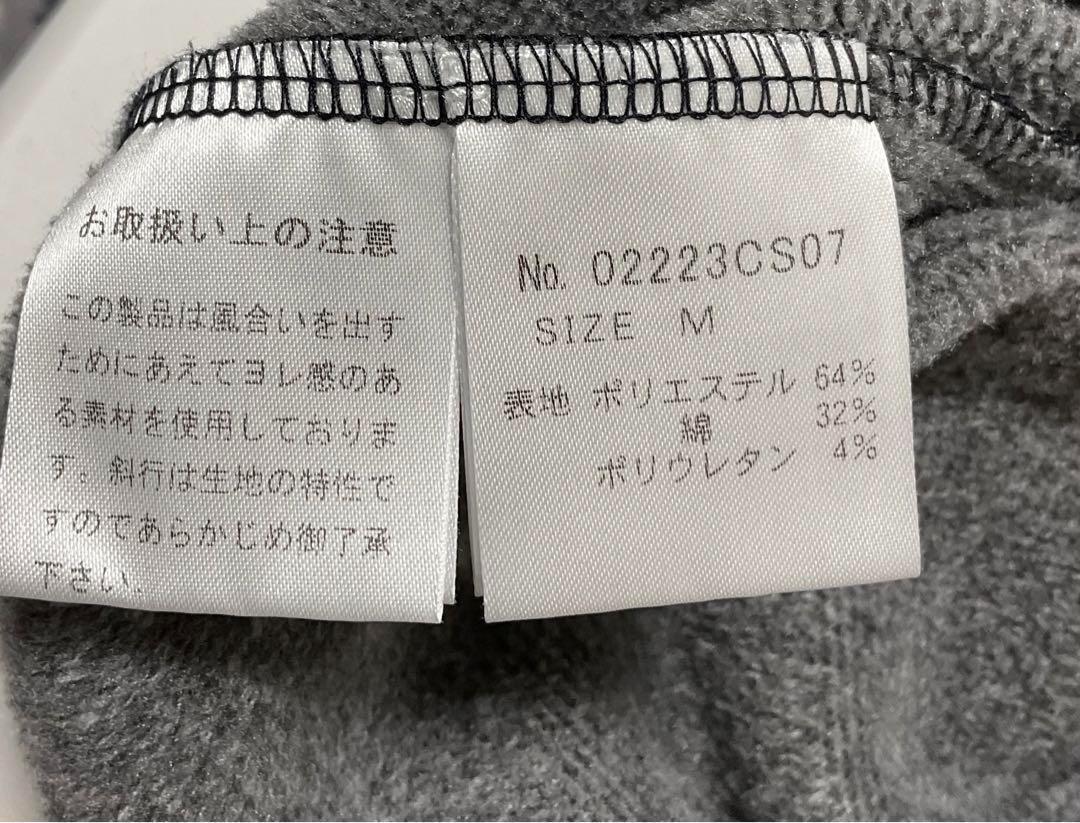 お取扱い上の注意
この製品は風合いを出す
ためにあえてヨレ感のあ
る素材を使用しておりま
す。斜行は生地の特性で
すのであらかじめ御了承
下さい.
No. 02223CS07
SIZE M
表地 ポリエステル 64%
綿 32%
ポリウレタン 4%